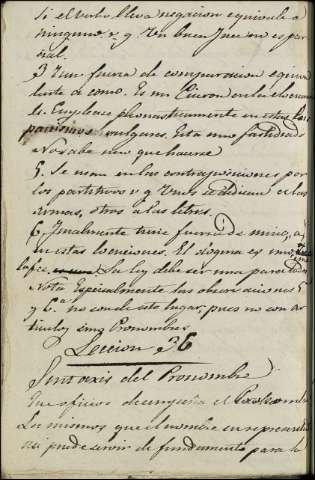 Si el verbo lleva negacion equivale a
ninguno v. g. Un buen Juez no es par
cial.
3 Tiene fuerza de comparacion equiva
lente a como. Es un Ciceron en la elocuencia
4. Emplease pleonasticamente en estos his
panismos vulgares. Esta uno fastidiado
No sabe uno que hacerse
5. Se usan en las contraposiciones por
los partitivos v. g. Unos se dedican a las
armas, otros a las letras.
6. Finalmente tiene fuerza de mismo, a,
en estas locuciones. El dogma es uno,
la fe. Su ley debe ser una para todos
Nota Especialmente las observaciones 5
y 6.a no son de este lugar, pues no son ar
ticulos sino Pronombres
Leccion 36
Sintaxis del Pronombre
Que oficios desempeña el Pronombre
Los mismos que el nombre en representa
asi puede servir de fundamento para la